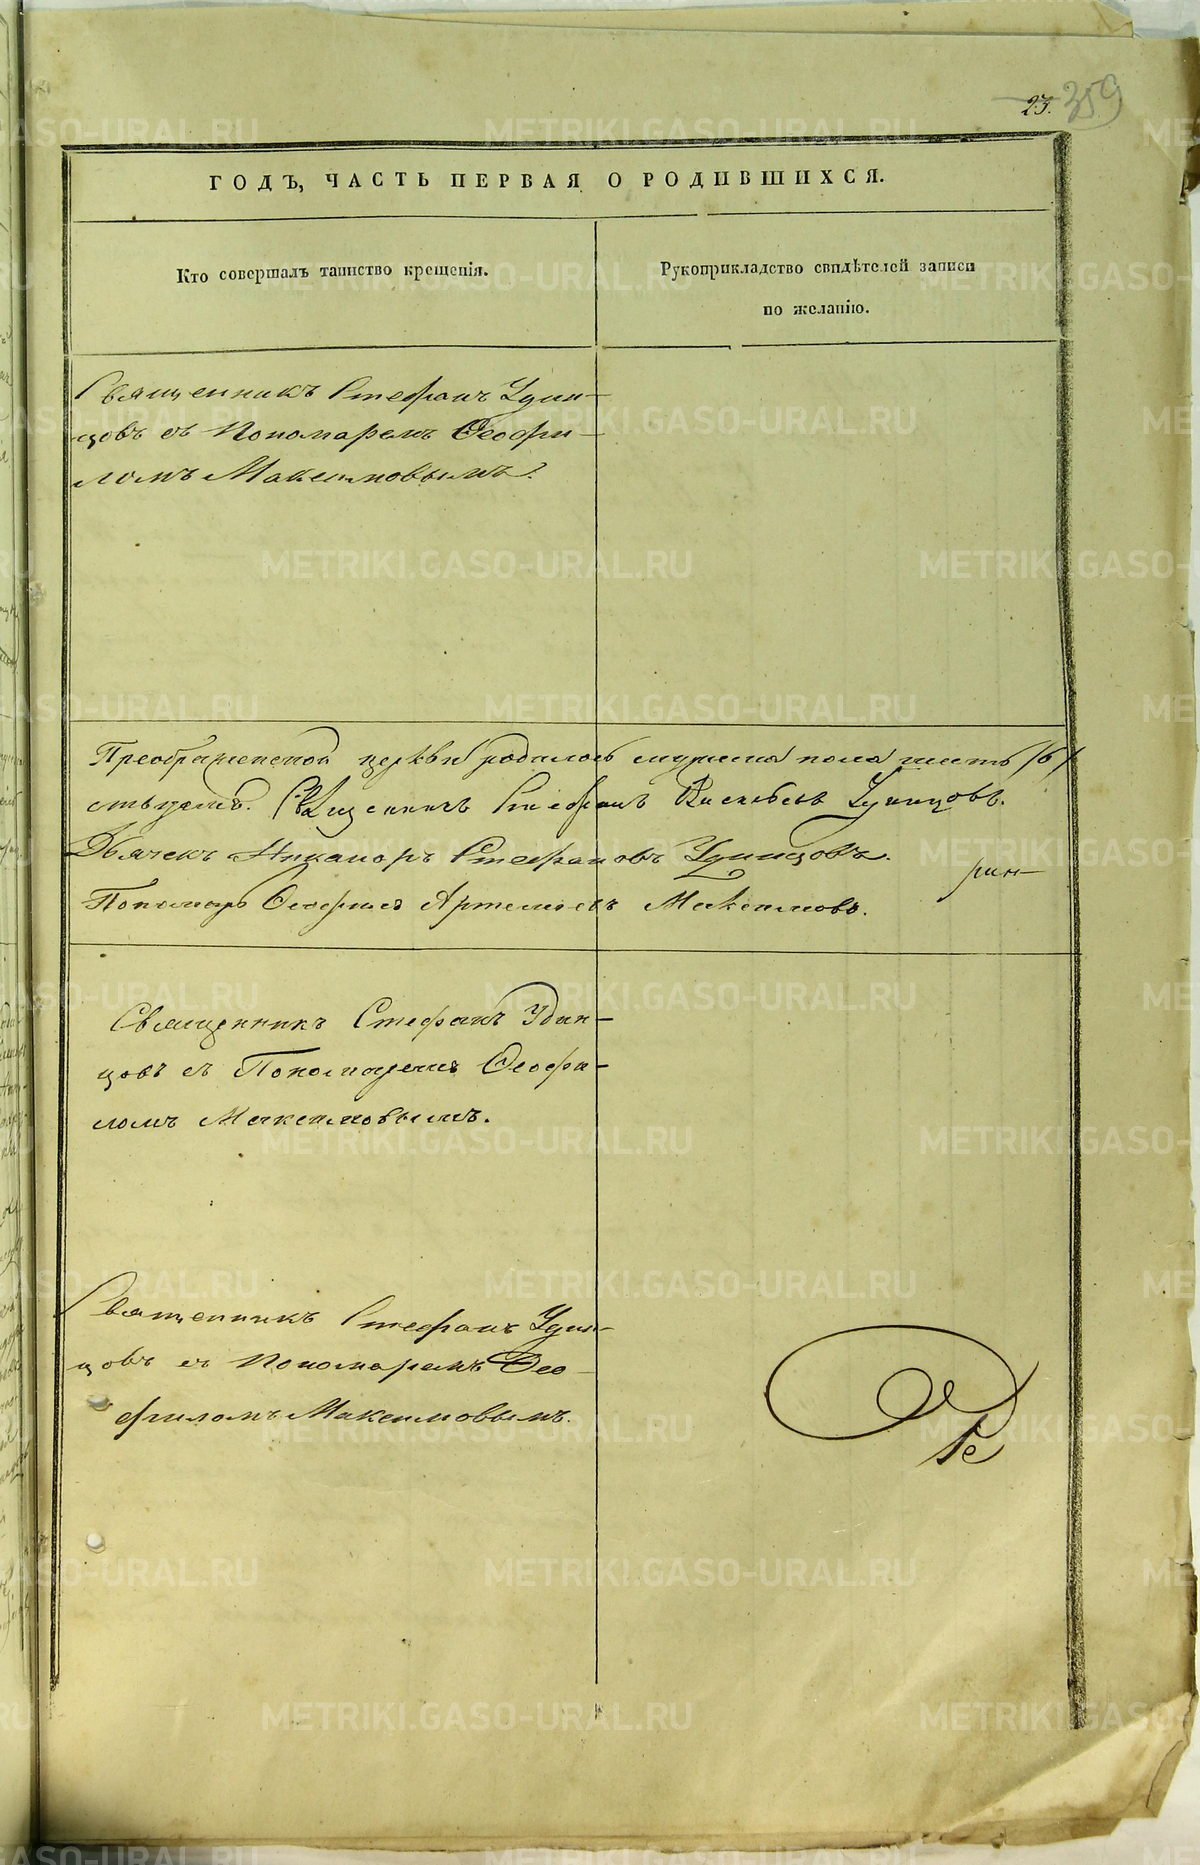 23. 359
ГОДЪ, ЧАСТЬ ПЕРВАЯ О РОДИВШИХСЯ.
Кто совершалъ таинство крещенія.
Рукоприкладство свидѣтелей записи
по желанію.
Священникъ Стефанъ Удин-
цовъ съ Пономаремъ Ѳеофи-
ломъ Максимовымъ.
Преображенской церкви родилось мужеска пола шесть /6/
Священникъ Стефанъ Васильевъ Удинцовъ.
Дьячекъ Никаноръ Стефановъ Удинцовъ.
Пономарь Ѳеофилъ Артемьевъ Максимовъ.
Священникъ Стефанъ Удин-
цовъ съ Пономаремъ Ѳеофи-
ломъ Максимовымъ.
Священникъ Стефанъ Удин-
цовъ съ Пономаремъ Ѳео-
филомъ Максимовымъ.
METRIKI.GASO-URAL.RU